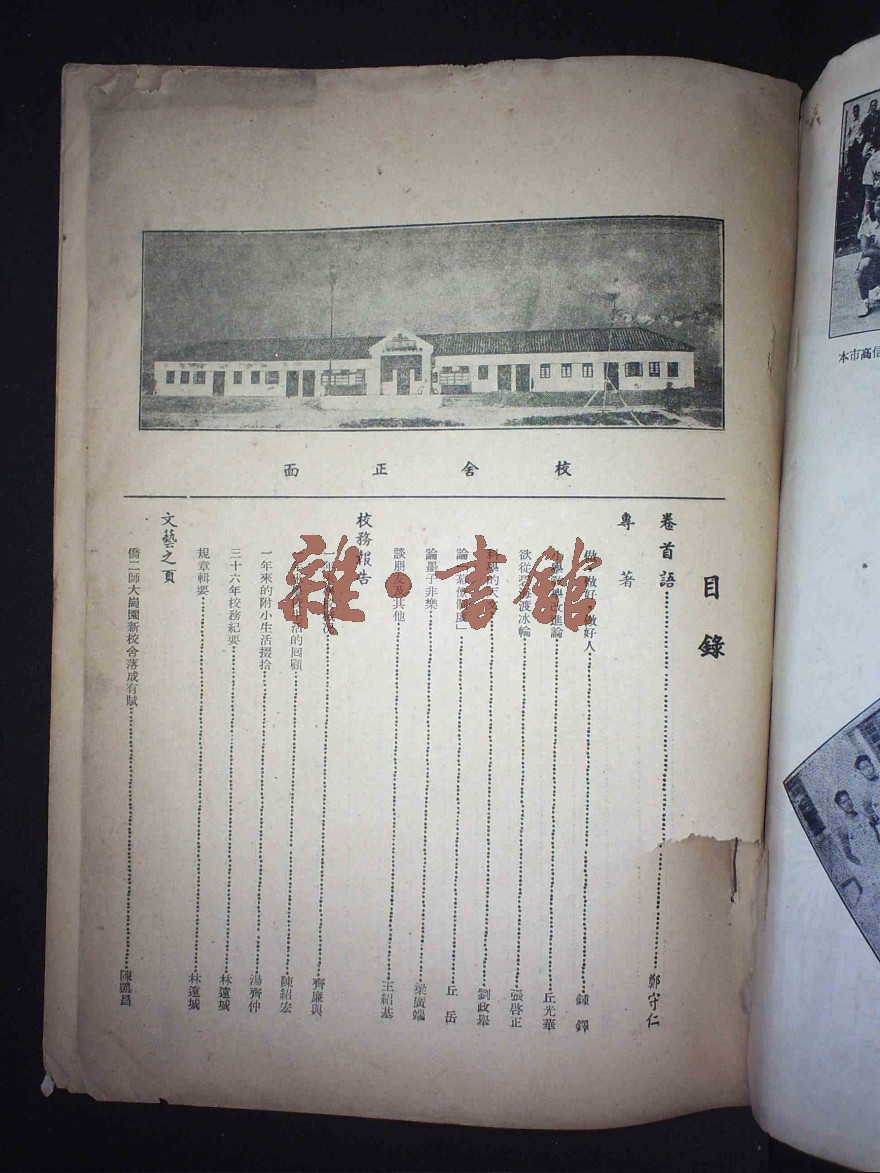 校舍正面
目錄
卷首語 鄭守仁
專著
做 做好 做好人 鍾鐸
小學 學改進論 丘光華
欲從 渡冰輪 張啓正
科學的天文 劉政舉
論 丘岳
論墨子非樂 梁廣端
談朋友及其他 王紹基
校務報告
一年 況 齊廉與
年 生活的回顧 陳紹宏
一年來的附小生活掇拾 湯齊仲
三十六年校務紀要 林遠城
規章輯要 林遠城
文藝之頁
僑二師大崗園新校舍落成有賦 陳鵬昌
雜·書館
本市高信